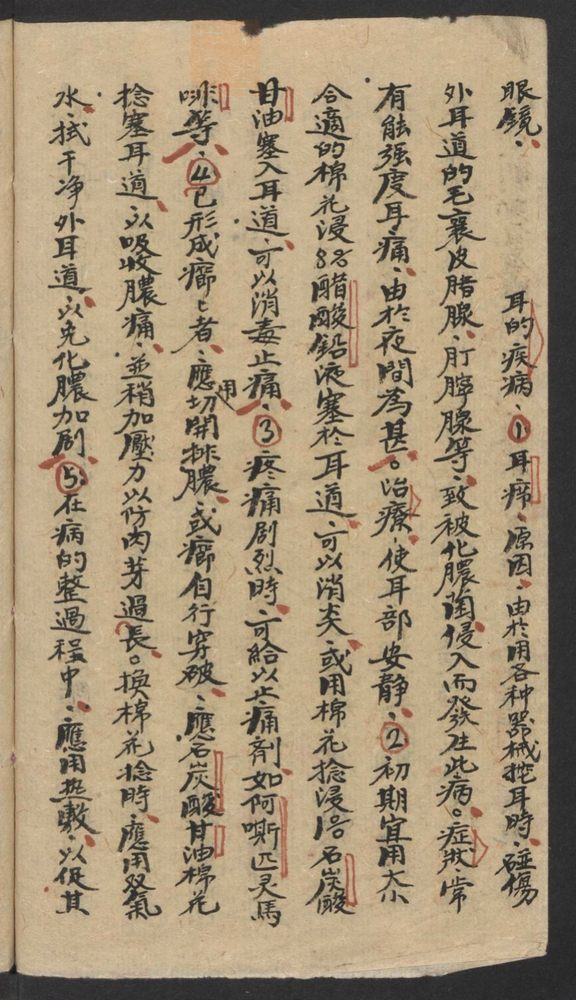 眼鏡、 耳的疾病、①耳癤、原因、由於用各种器械挖耳時、碰傷
外耳道的毛襄皮脂腺、肛腺等、致被化膿菌侵入而發生此病。症狀、常
有骇强度耳痛、由於夜間為甚。治療、使耳部安静、②初期宜用大小
合適的棉花浸8%醋酸鉛液塞於耳道、可以消炎、或用棉花捻浸1%石炭酸
甘油塞入耳道、可以消毒止痛、③疼痛剧烈時、可給以止痛剤如阿嘶匹灵馬
啡等、④已形成癤ヒ者、應用切開排膿、或癤自行穿破、應石炭酸甘油棉花
捻塞耳道、以吸收膿痛、並稍加壓力以防肉芽過長。换棉花捻時、應用双氧
水、拭干净外耳道、以免化膿加剧⑤在病的整過程中、應用热敷、以促其